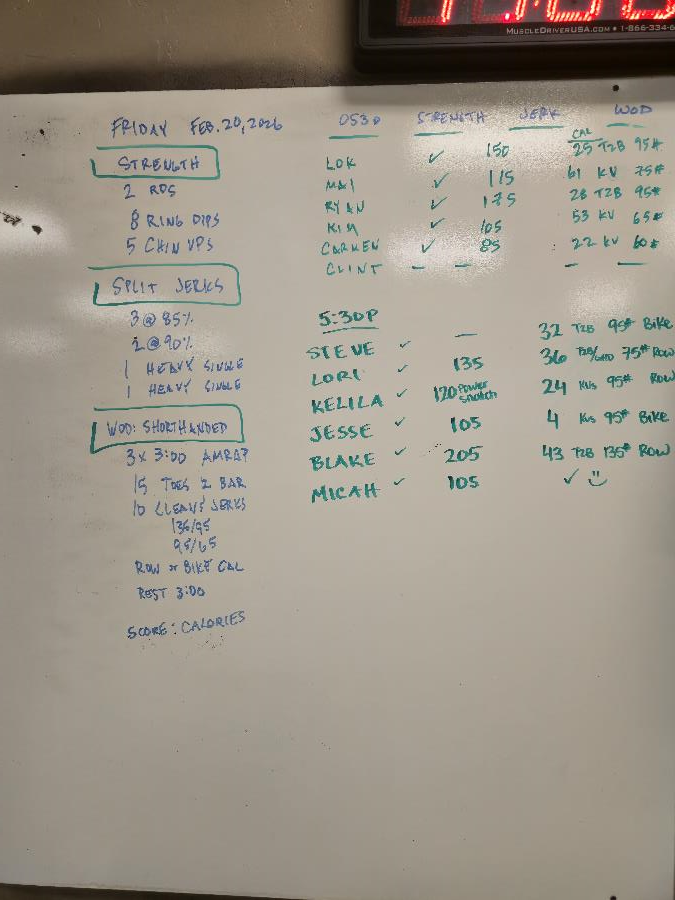 MUSCLEDRIVERUSA.COM • 1-866-334-6
FRIDAY FEB. 20, 2026
STRENGTH
2 RDS
8 RING DIPS
5 CHIN UPS
SPLIT JERKS
3 @ 85%
2 @ 90%
1 HEAVY SINGLE
1 HEAVY SINGLE
WOD: SHORTHANDED
3 x 3:00 AMRAP
15 TOES 2 BAR
10 CLEAN & JERKS
135/95
95/65
ROW or BIKE CAL
REST 3:00
SCORE: CALORIES
0530 STRENGTH JERK WOD
CAL
LOK ✓ 150 25 T2B 95#
MAI ✓ 115 61 KV 75#
RYAN ✓ 175 28 T2B 95#
KIM ✓ 105 53 KV 65#
CARMEN ✓ 85 22 KV 60#
CLINT — — — —
5:30P
STEVE ✓ — 32 T2B 95# Bike
LORI ✓ 135 36 T2B/GHD 75# ROW
KELILA ✓ 120 Power Snatch 24 KUs 95# ROW
JESSE ✓ 105 4 KUs 95# Bike
BLAKE ✓ 205 43 T2B 135# ROW
MICAH ✓ 105 ✓ :)